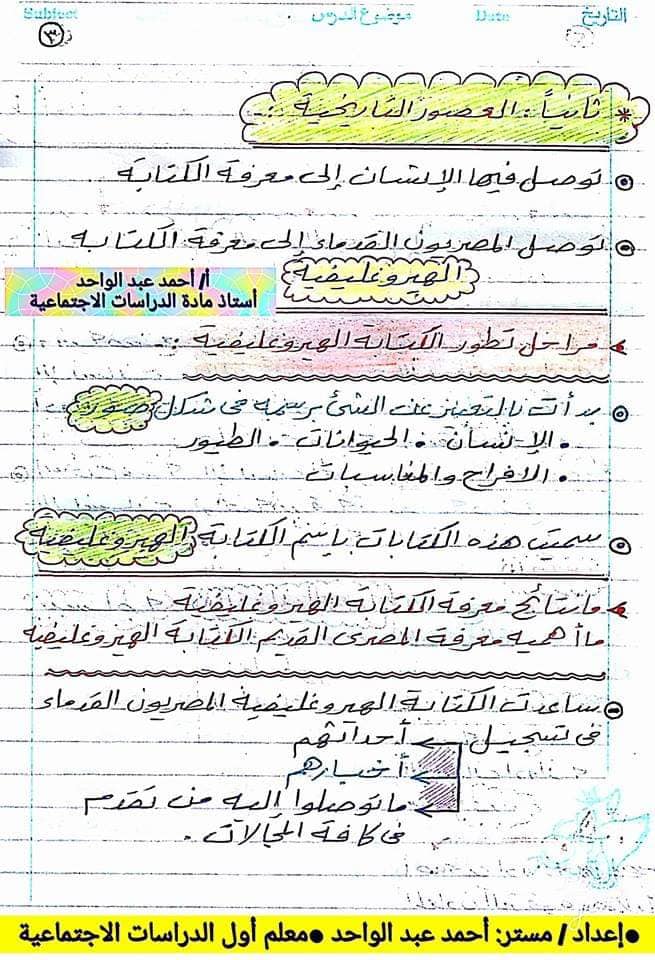 التاريخ Date موضوع الدرس Subject
٣
* ثانياً : العصور التاريخية :-
توصل فيها الإنسان إلى معرفة الكتابة
توصل المصريون القدماء إلى معرفة الكتابة
الهيروغليفية
أ/ أحمد عبد الواحد
أستاذ مادة الدراسات الاجتماعية
مراحل تطور الكتابة الهيروغليفية :-
بدأت بالتعبير عن الشئ برسمه فى شكل صور
• الإنسان • الحيوانات • الطيور
• الافراح والمناسبات
سميت هذه الكتابات باسم الكتابة الهيروغليفية
مانتائج معرفة الكتابة الهيروغليفية
ما أهمية معرفة المصرى القديم الكتابة الهيروغليفية
ساعدت الكتابة الهيروغليفية المصريون القدماء
فى تسجيل أحداثهم
أخبارهم
ماتوصلوا إليه من تقدم
فى كافة المجالات .
●إعداد / مستر: أحمد عبد الواحد ●معلم أول الدراسات الاجتماعية